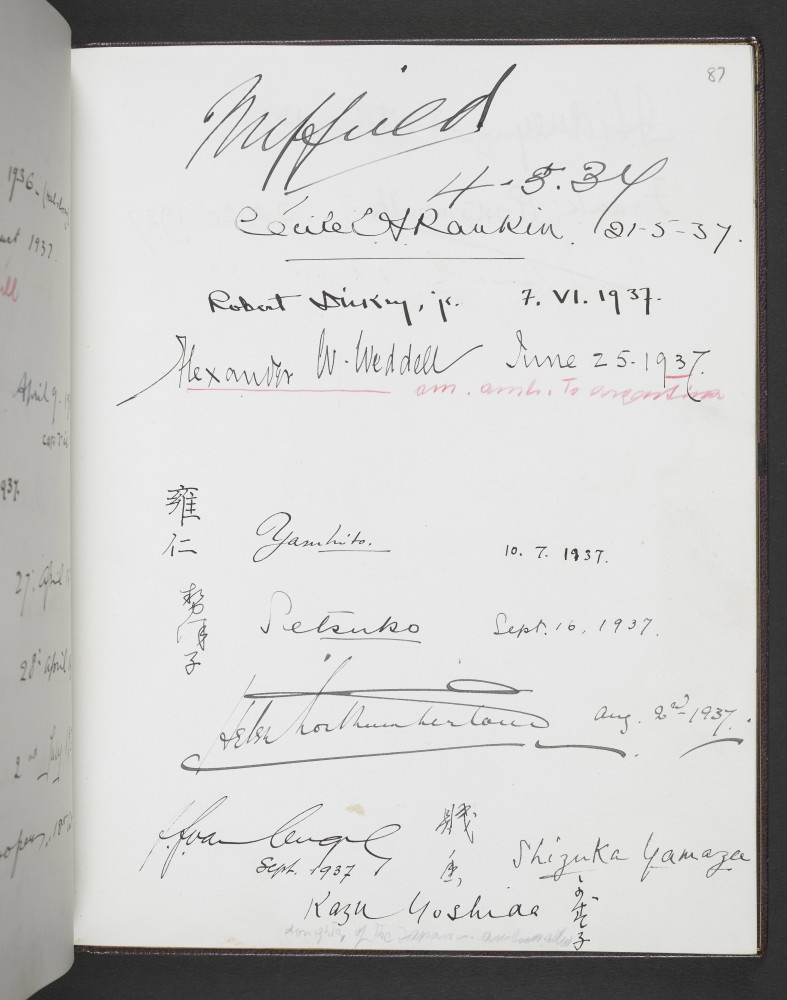 87
Nuffield
4-5.37
Cécile Rankin. 21-5-37.
Robert Dickey, jr. 7. VI. 1937.
Alexander W. Weddell June 25-1937.
am. amb. to argentina
雍仁 Yasuhito. 10. 7. 1937.
勢津子 Setsuko Sept. 16, 1937.
Helen Northumberland Aug. 2nd-1937.
van
Sept. 1937
Shizuka Yamaza
Kazu Yoshida
daughter of the
1936-
1937.
April 9-
937.
27. April
28. April
2nd July